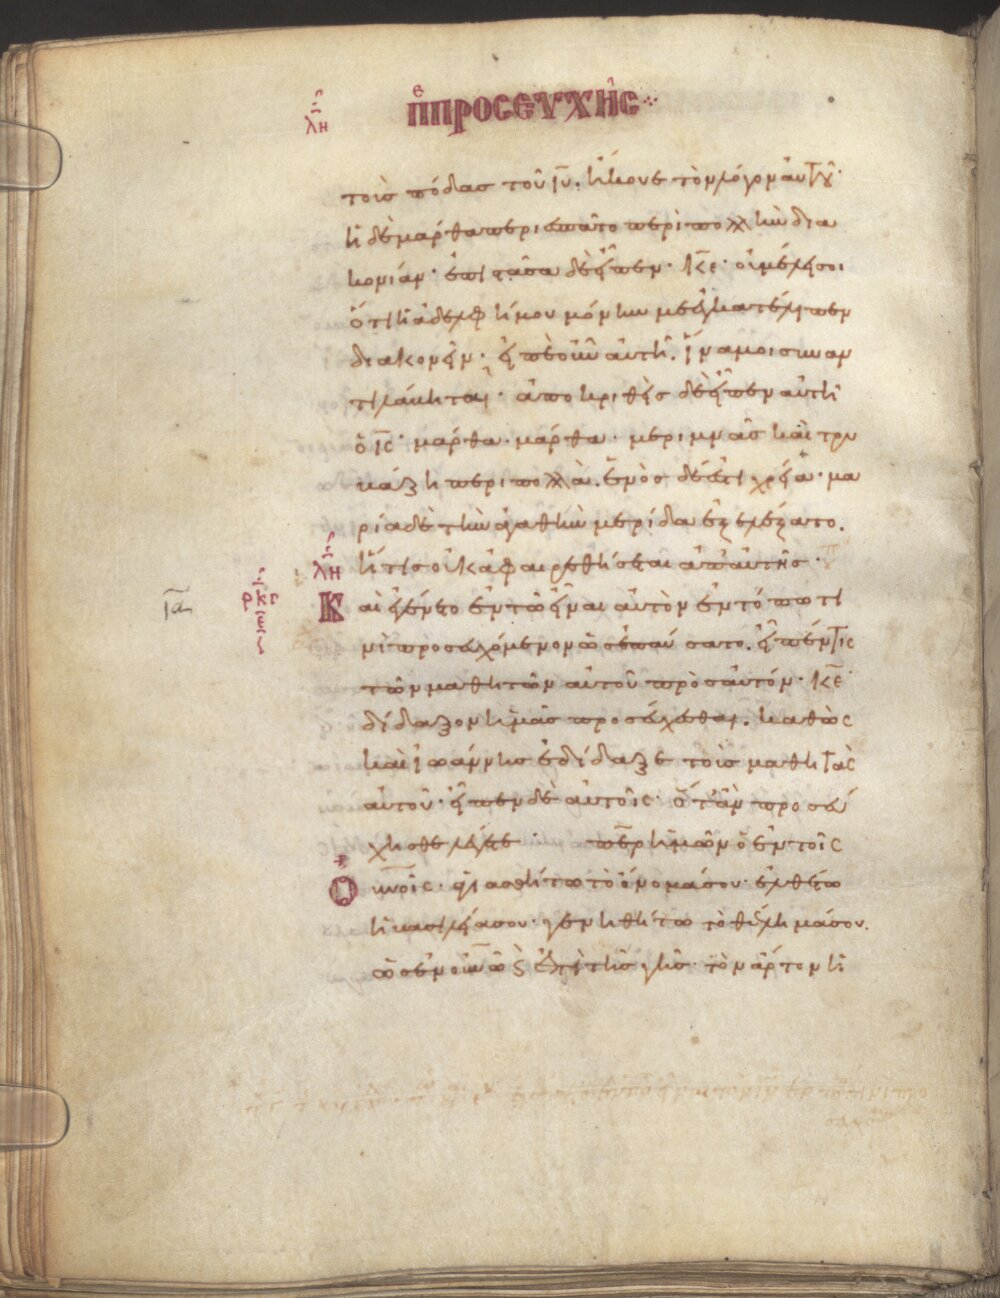 πε προσευχῆς
λη
τοὺς πόδας τοῦ ιυ. ἤκουε τὸν λόγον αὐτοῦ·
ἡ δὲ μάρθα περιεσπᾶτο περὶ πολλὴν δια
κονίαν· ἐπιστᾶσα δὲ εἶπεν· κε· οὐ μέλει σοι
ὅτι ἡ ἀδελφή μου μόνην με ἐγκατέλιπεν
διακονεῖν· εἰπὲ οὖν αὐτῇ. ἵνα μοι συναν
τιλάβηται· ἀποκριθεὶς δὲ εἶπεν αὐτῇ
ὁ ις· μάρθα· μάρθα· μεριμνᾶς καὶ τυρ
βάζη περὶ πολλά. ἑνὸς δέ ἐστι χρεία· μα
ρία δὲ τὴν ἀγαθὴν μερίδα ἐξελέξατο.
ἥτις οὐκ ἀφαιρεθήσεται ἀπ' αὐτῆς·
λη
ια
Καὶ ἐγένετο ἐν τῶ εἶναι αὐτὸν ἐν τόπω τι
νὶ προσευχόμενον ὡς ἐπαύσατο. εἶπέν τις
τῶν μαθητῶν αὐτοῦ πρὸς αὐτόν· κε
δίδαξον ἡμᾶς προσεύχεσθαι. καθὼς
καὶ ἰωάννης ἐδίδαξε τοὺς μαθητὰς
αὐτοῦ· εἶπεν δὲ αὐτοῖς· ὅταν προσεύ
χησθε λέγετε· περ ἡμῶν ὁ ἐν τοῖς
Ουνοῖς· ἁγιασθήτω τὸ ὄνομά σου· ἐλθέτω
ἡ βασιλεία σου· γενηθήτω τὸ θέλημά σου.
ὡς ἐν οὐνῶ ς ἐπὶ τῆς γῆς· τὸν ἄρτον ἡ